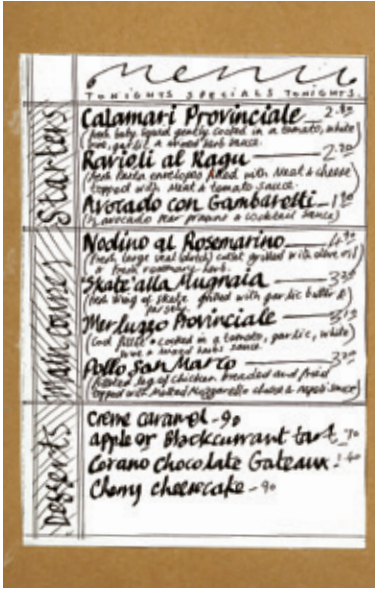 menu
TONIGHTS SPECIALS TONIGHTS
Starters
Calamari Provinciale 2.80
(fresh baby squid gently cooked in a tomato, white
wine, garlic & mixed herb sauce
Ravioli al Ragu 2.20
(fresh Pasta envelopes filled with Meat & cheese
topped with Meat & tomato sauce.
Avocado con Gambaretti
(½ avocado Pear prawns & cocktail sauce)
Main Courses
Nodino al Rosemarino 4.90
(fresh large veal cutlet grilled with olive oil
& fresh rosemary herb.
Skate alla Mugnaia
(fresh wing of skate grilled with garlic butter &
parsley
Merluzzo Provinciale
(Cod fillet cooked in a tomato, garlic, white)
wine & mixed herbs sauce
Pollo San Marco
(filleted leg of chicken breaded and fried
topped with melted Mozzarella cheese & sauce)
Desserts
Creme caramel - 90
apple or Blackcurrant tart
Corano chocolate Gateaux
Cherry cheesecake - 90